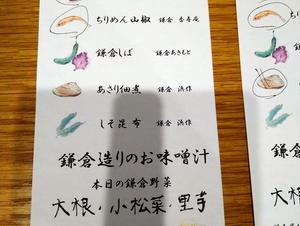 ちりめん山椒 鎌倉 香寿庵
鎌倉しば 鎌倉 あきもと
あさり佃煮 鎌倉 浜作
しそ昆布 鎌倉 浜作
鎌倉造りのお味噌汁
本日の鎌倉野菜
大根・小松菜・里芋